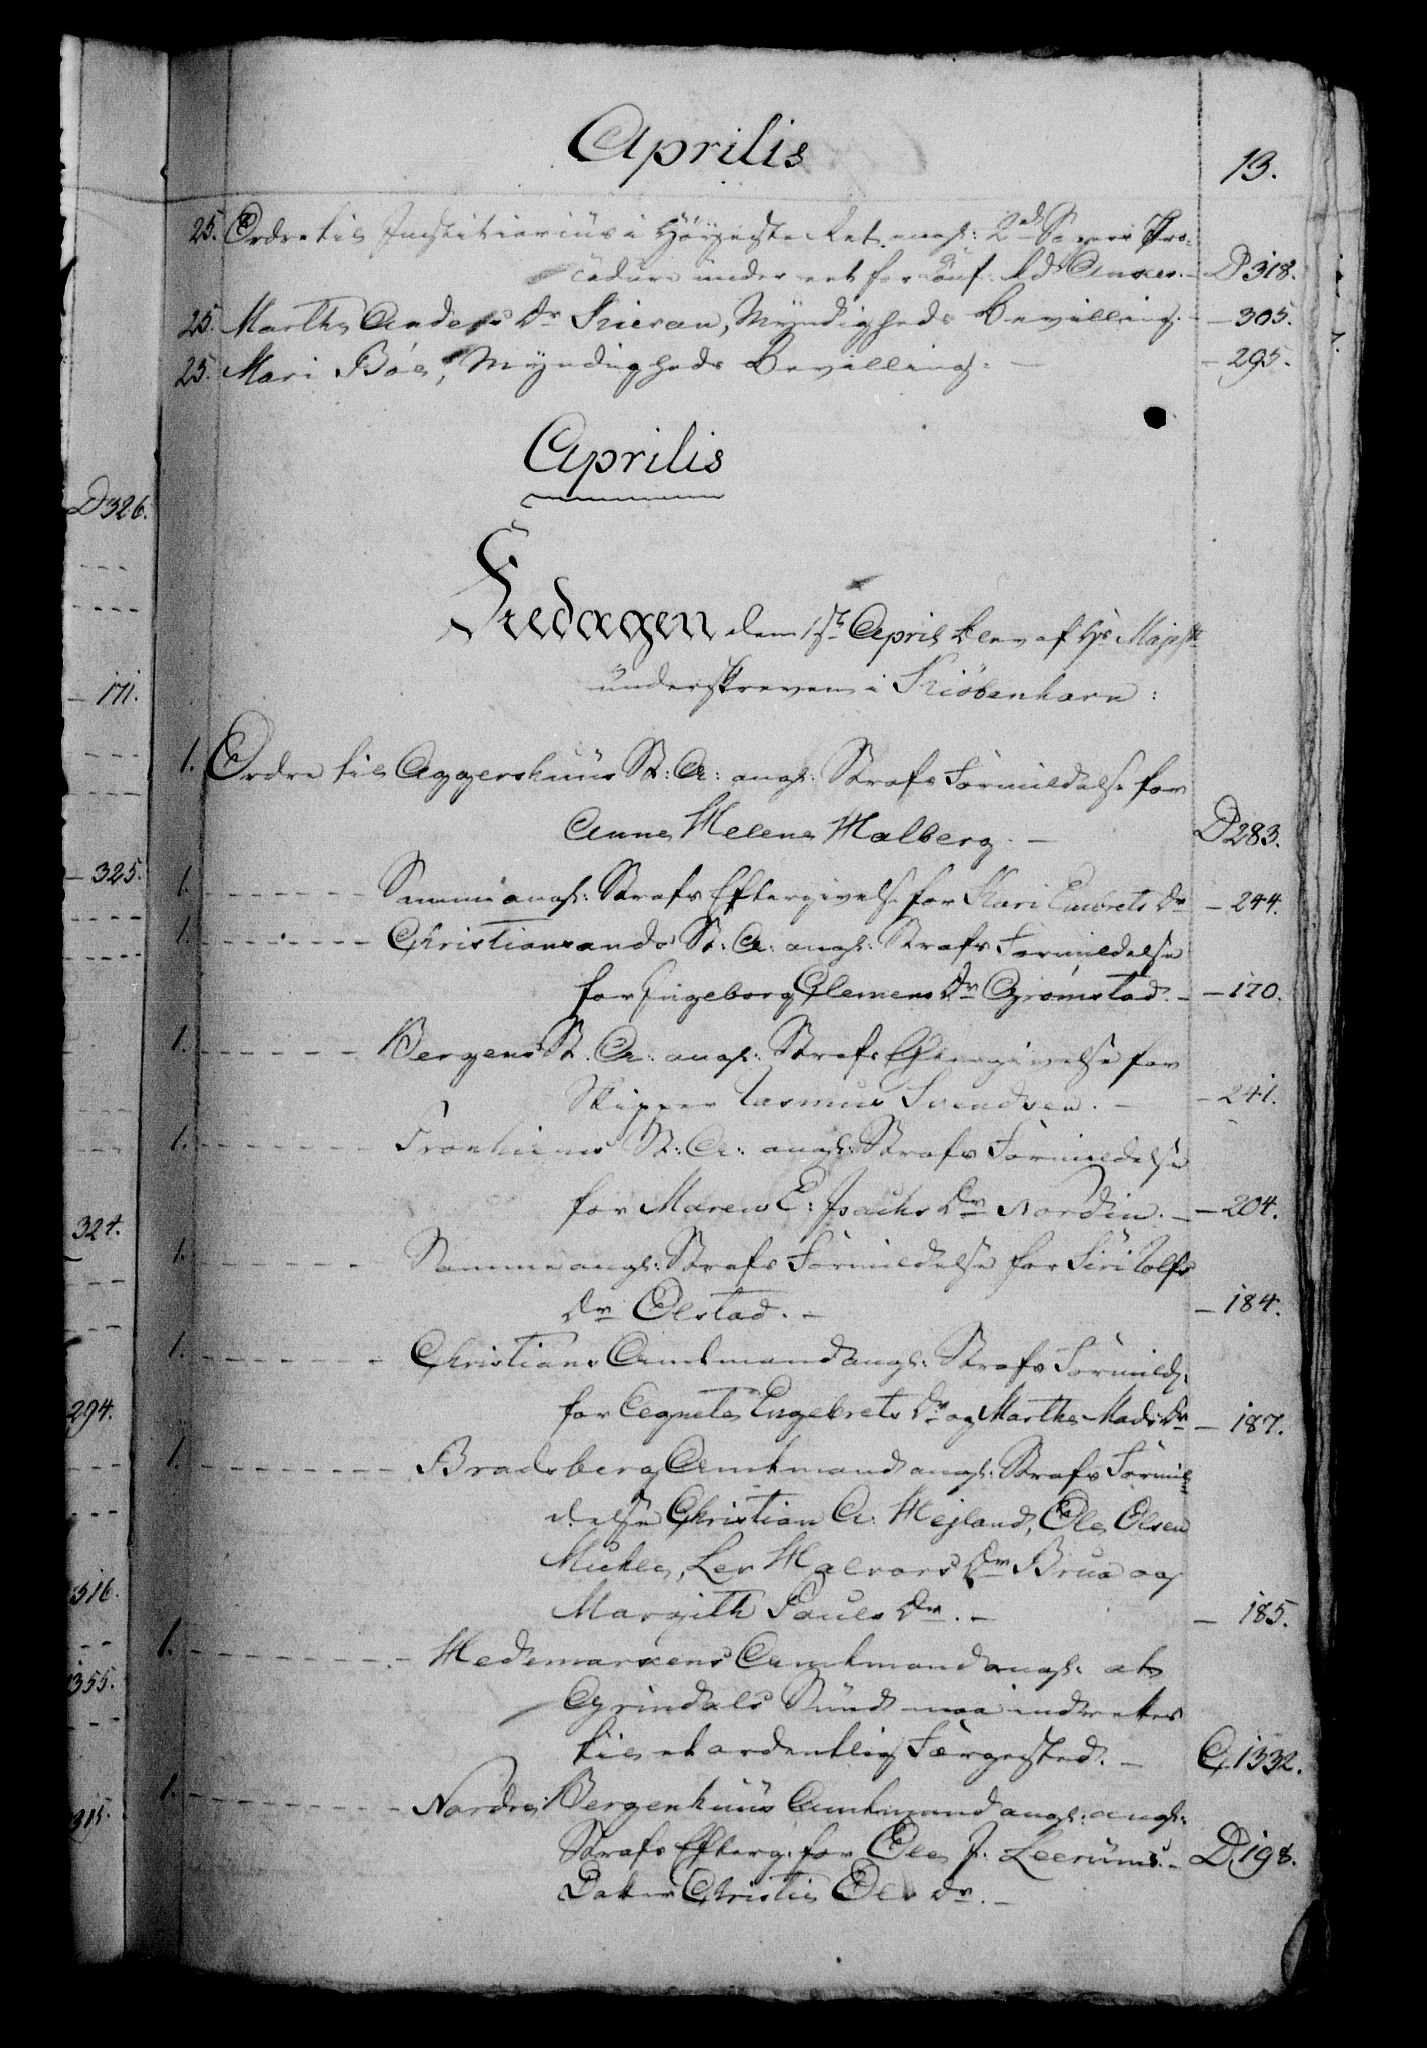 Aprilis
13.
25. Ordre til Justitiarius i Høyeste Ret angl: 2de Sager Pro-
cedure under et for Conf. Rd
D 318.
25. Marthe Anders Dr Kieran, Myndigheds Bevilling. - 305.
25. Mari Boe, Myndigheds Bevilling. - 295.
Aprilis
Fredagen den 1ste April blev af Hs Majestt
underskreven i Kiöbenhavn:
1. Ordre til Aggershuus St: A: angl: Strafs Formildelse for
Anne Helene Halberg. - D 283.
1. Samme angl: Strafs Eftergivelse for Kari Embrets Dr - 244.
1. Christiansands St: A: angl: Strafs Formildelse
for Ingeborg Clemens Dr Grömstad. - 170.
1. Bergens St. A: angl: Strafs Eftergivelse for
Skipper Rasmus Svendsen. - 241.
1. Tronhiems St: A: angl: Strafs Formildelse
for Maren E: Isachs Dr Nordin. - 204.
1. Samme angl: Strafs Formildelse for Siri Rolfs
Dr Olstad. - 184.
1. Christians Amtmand angl: Strafs Formild:
for Agnete Engebrets Dr og Marthe Mads Dr - 187.
1. Bradsberg Amtmand angl: Strafs Formil-
delse Christian A: Hejland, Ole Olsen
Mickle, Lev Halvors Dr Brua og
Margith Pauls Dr. - 185.
1. Hedemarkens Amtmand angl: at
Grindals Sund maa indrettes
til et ordentlig Færgested. - C, 1332.
1. Nordre Bergenhuus Amtmand angl: angl:
Strafs Efterg. for Ole J. Leerums - D, 198.
Datter Christie Ols Dr. -
D 326.
- 171.
- 325.
324.
294.
316.
355.
315.